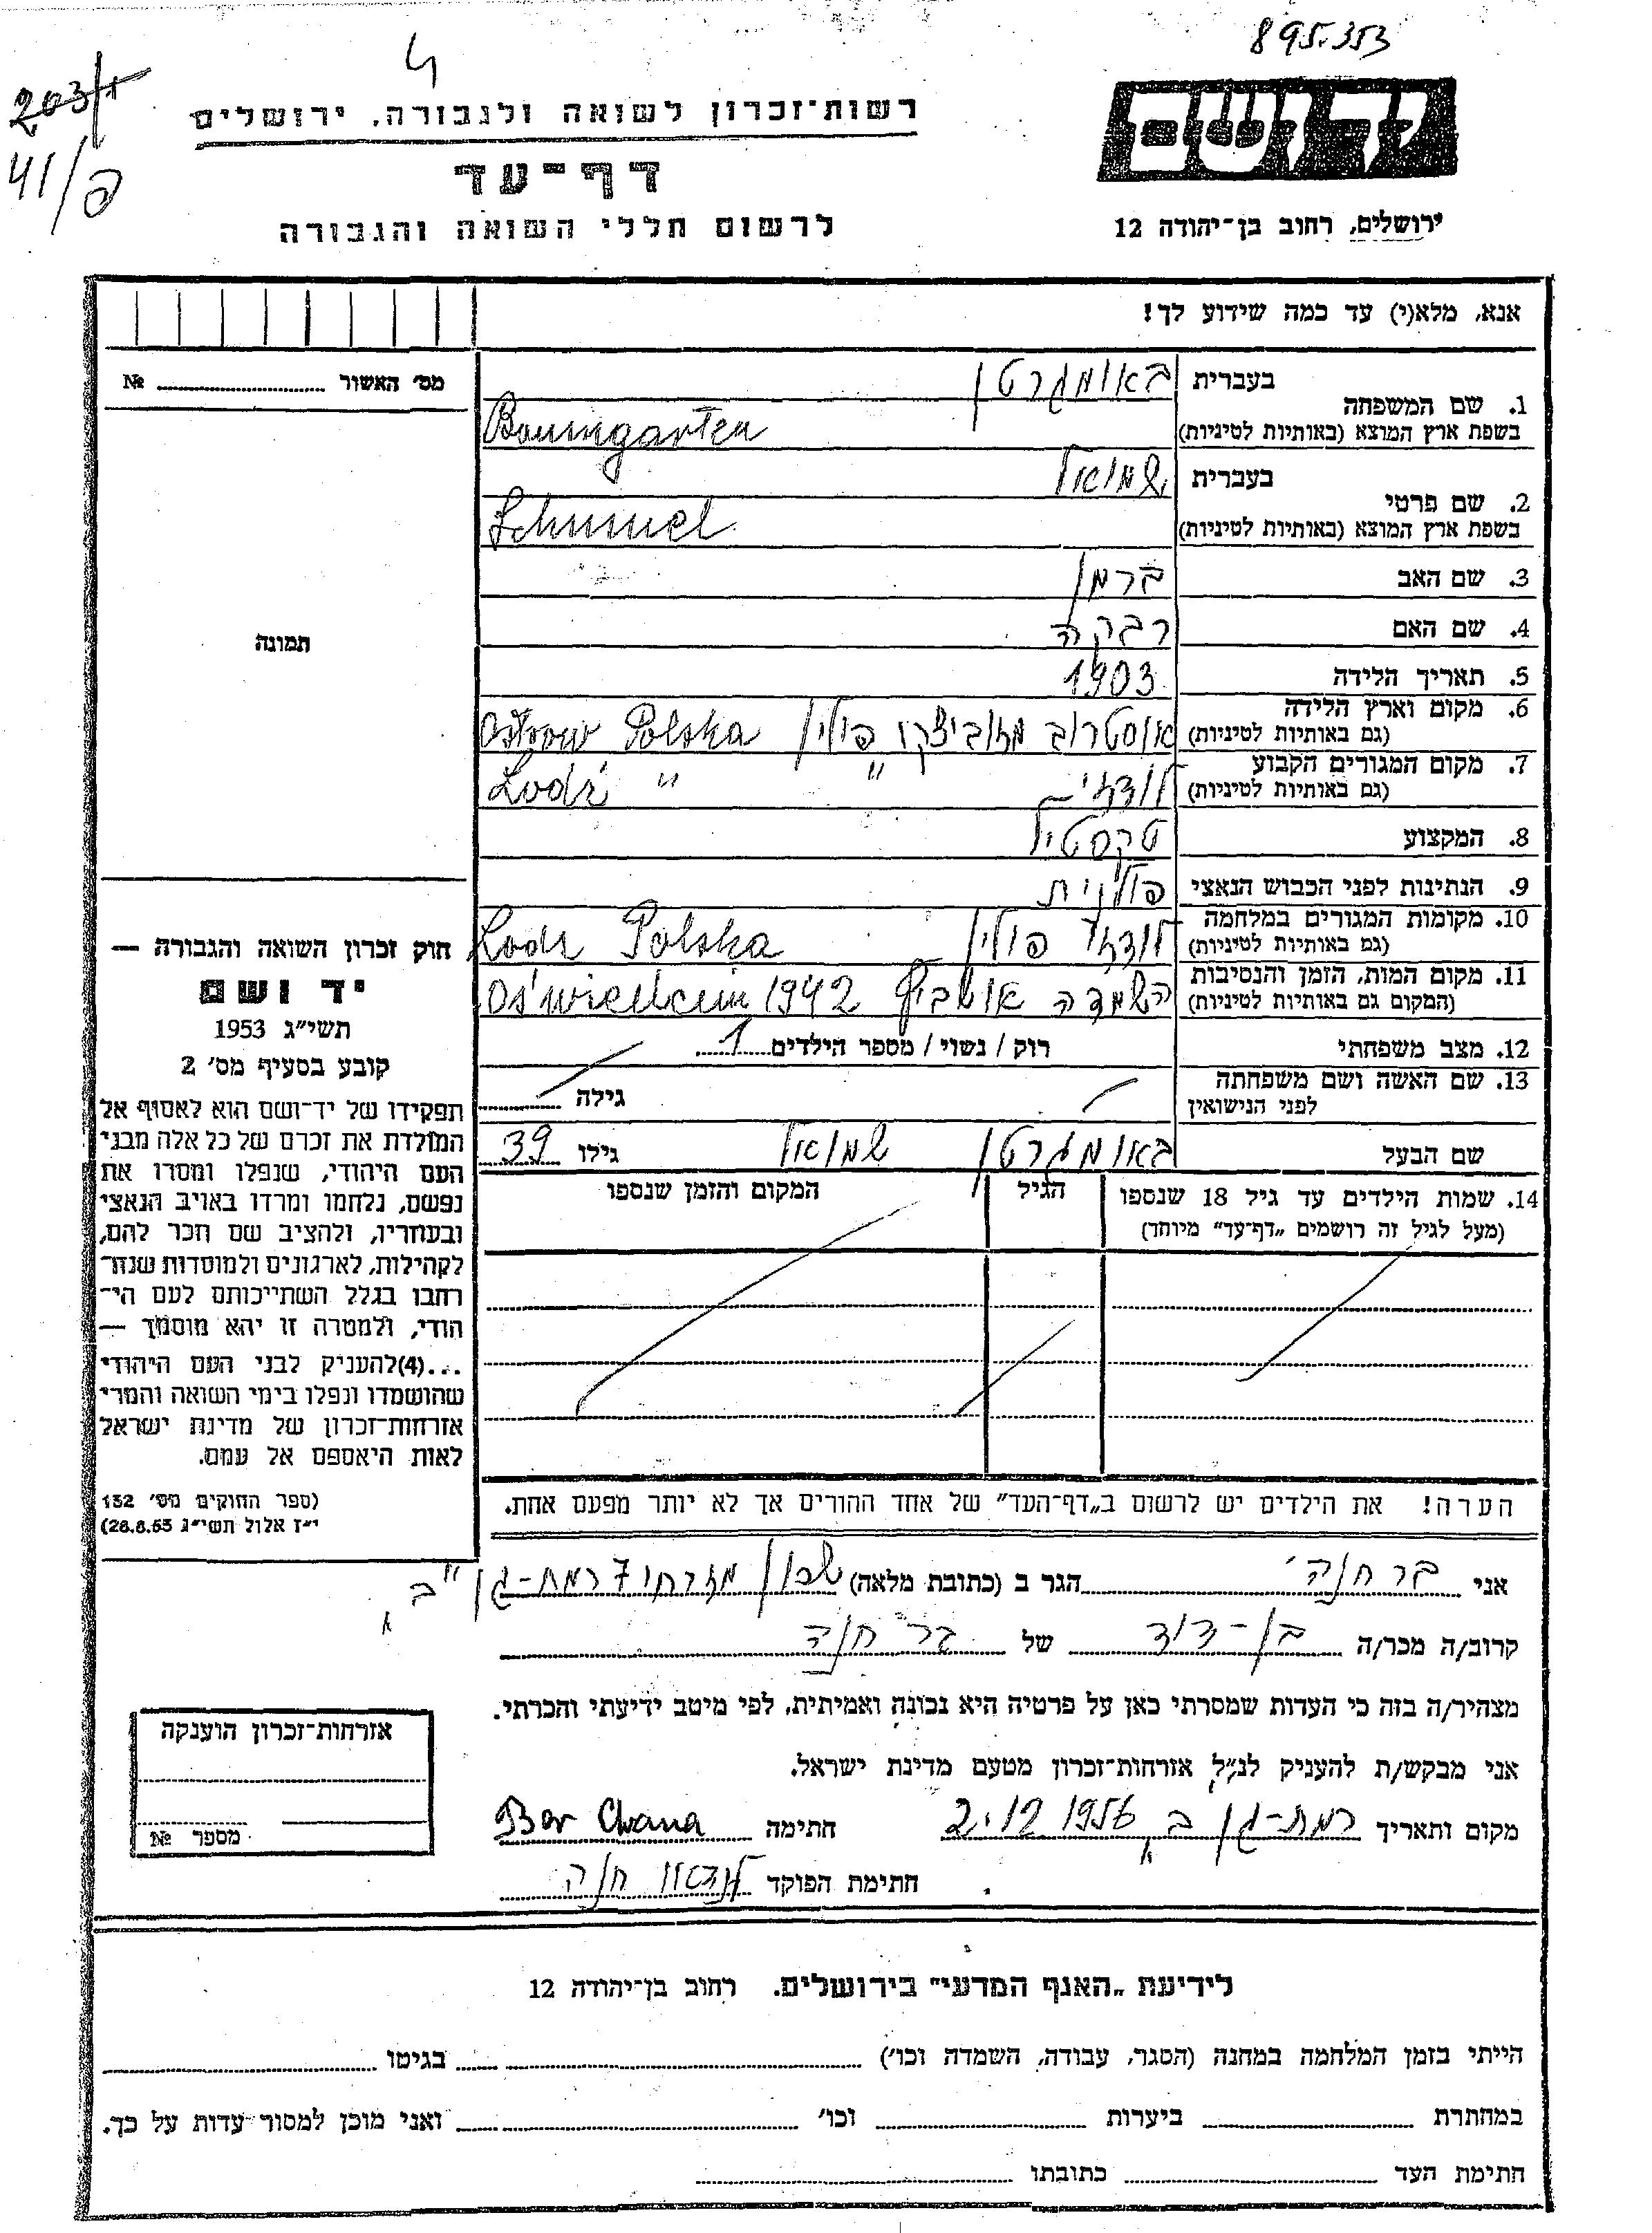 895.353
4
203/1
41/פ
רשות־זכרון לשואה ולגבורה, ירושלים
דף־עד
לרשום חללי השואה והגבורה
ידושם
ירושלים, רחוב בן־יהודה 12
אנא, מלא(י) עד כמה שידוע לך!
מס׳ האשור № ........
1. שם המשפחה בעברית באומגרטן
בשפת ארץ המוצא (באותיות לטיניות) Baumgarten
2. שם פרטי בעברית שמואל
בשפת ארץ המוצא (באותיות לטיניות) Schmuel
3. שם האב ברמן
4. שם האם רבקה
5. תאריך הלידה 1903
6. מקום וארץ הלידה (גם באותיות לטיניות) אוסטרוב מזוביצקו פולין Ostrow Polska
7. מקום המגורים הקבוע (גם באותיות לטיניות) לודזי " Lodź "
8. המקצוע טקסטיל
9. הנתינות לפני הכבוש הנאצי פולנית
10. מקומות המגורים במלחמה (גם באותיות לטיניות) לודזי פולין Lodz Polska
11. מקום המות, הזמן והנסיבות (המקום גם באותיות לטיניות) השמדה אושביץ 1942 Oświencim
12. מצב משפחתי רוק / נשוי / מספר הילדים 1
13. שם האשה ושם משפחתה לפני הנישואין גילה
שם הבעל באומגרטן שמואל גילו 39
14. שמות הילדים עד גיל 18 שנספו הגיל המקום והזמן שנספו
(מעל לגיל זה רושמים „דף־עד” מיוחד)
הערה! את הילדים יש לרשום ב„דף־העד” של אחד ההורים אך לא יותר מפעם אחת.
תמונה
חוק זכרון השואה והגבורה —
יד ושם
תשי״ג 1953
קובע בסעיף מס׳ 2
תפקידו של יד־ושם הוא לאסוף אל
המולדת את זכרם של כל אלה מבני
העם היהודי, שנפלו ומסרו את
נפשם, נלחמו ומרדו באויב הנאצי
ובעוזריו, ולהציב שם וזכר להם,
לקהילות, לארגונים ולמוסדות שנח־
רבו בגלל השתייכותם לעם הי־
הודי, ולמטרה זו יהא מוסמך —
...(4) להעניק לבני העם היהודי
שהושמדו ונפלו בימי השואה והמרי
אזרחות־זכרון של מדינת ישראל
לאות היאספם אל עמם.
(ספר החוקים מס׳ 132
י״ז אלול תשי״ג 28.8.53)
אני בר חנה הגר ב (כתובת מלאה) שכון מזרחי 7 רמת-גן ב'
קרוב/ה מכר/ה בן-דוד של בר חנה
מצהיר/ה בזה כי העדות שמסרתי כאן על פרטיה היא נכונה ואמיתית, לפי מיטב ידיעתי והכרתי.
אני מבקש/ת להעניק לנ״ל אזרחות־זכרון מטעם מדינת ישראל.
מקום ותאריך רמת-גן ב 2.12.1956 חתימה Ber Chana
חתימת הפוקד חנה
אזרחות־זכרון הוענקה
מספר №
לידיעת „האגף המדעי” בירושלים. רחוב בן־יהודה 12
הייתי בזמן המלחמה במחנה (הסגר, עבודה, השמדה וכו׳) ........ בגיטו ........
במחתרת ........ ביערות ........ וכו׳ ........ ואני מוכן למסור עדות על כך.
חתימת העד ........ כתובתו ........